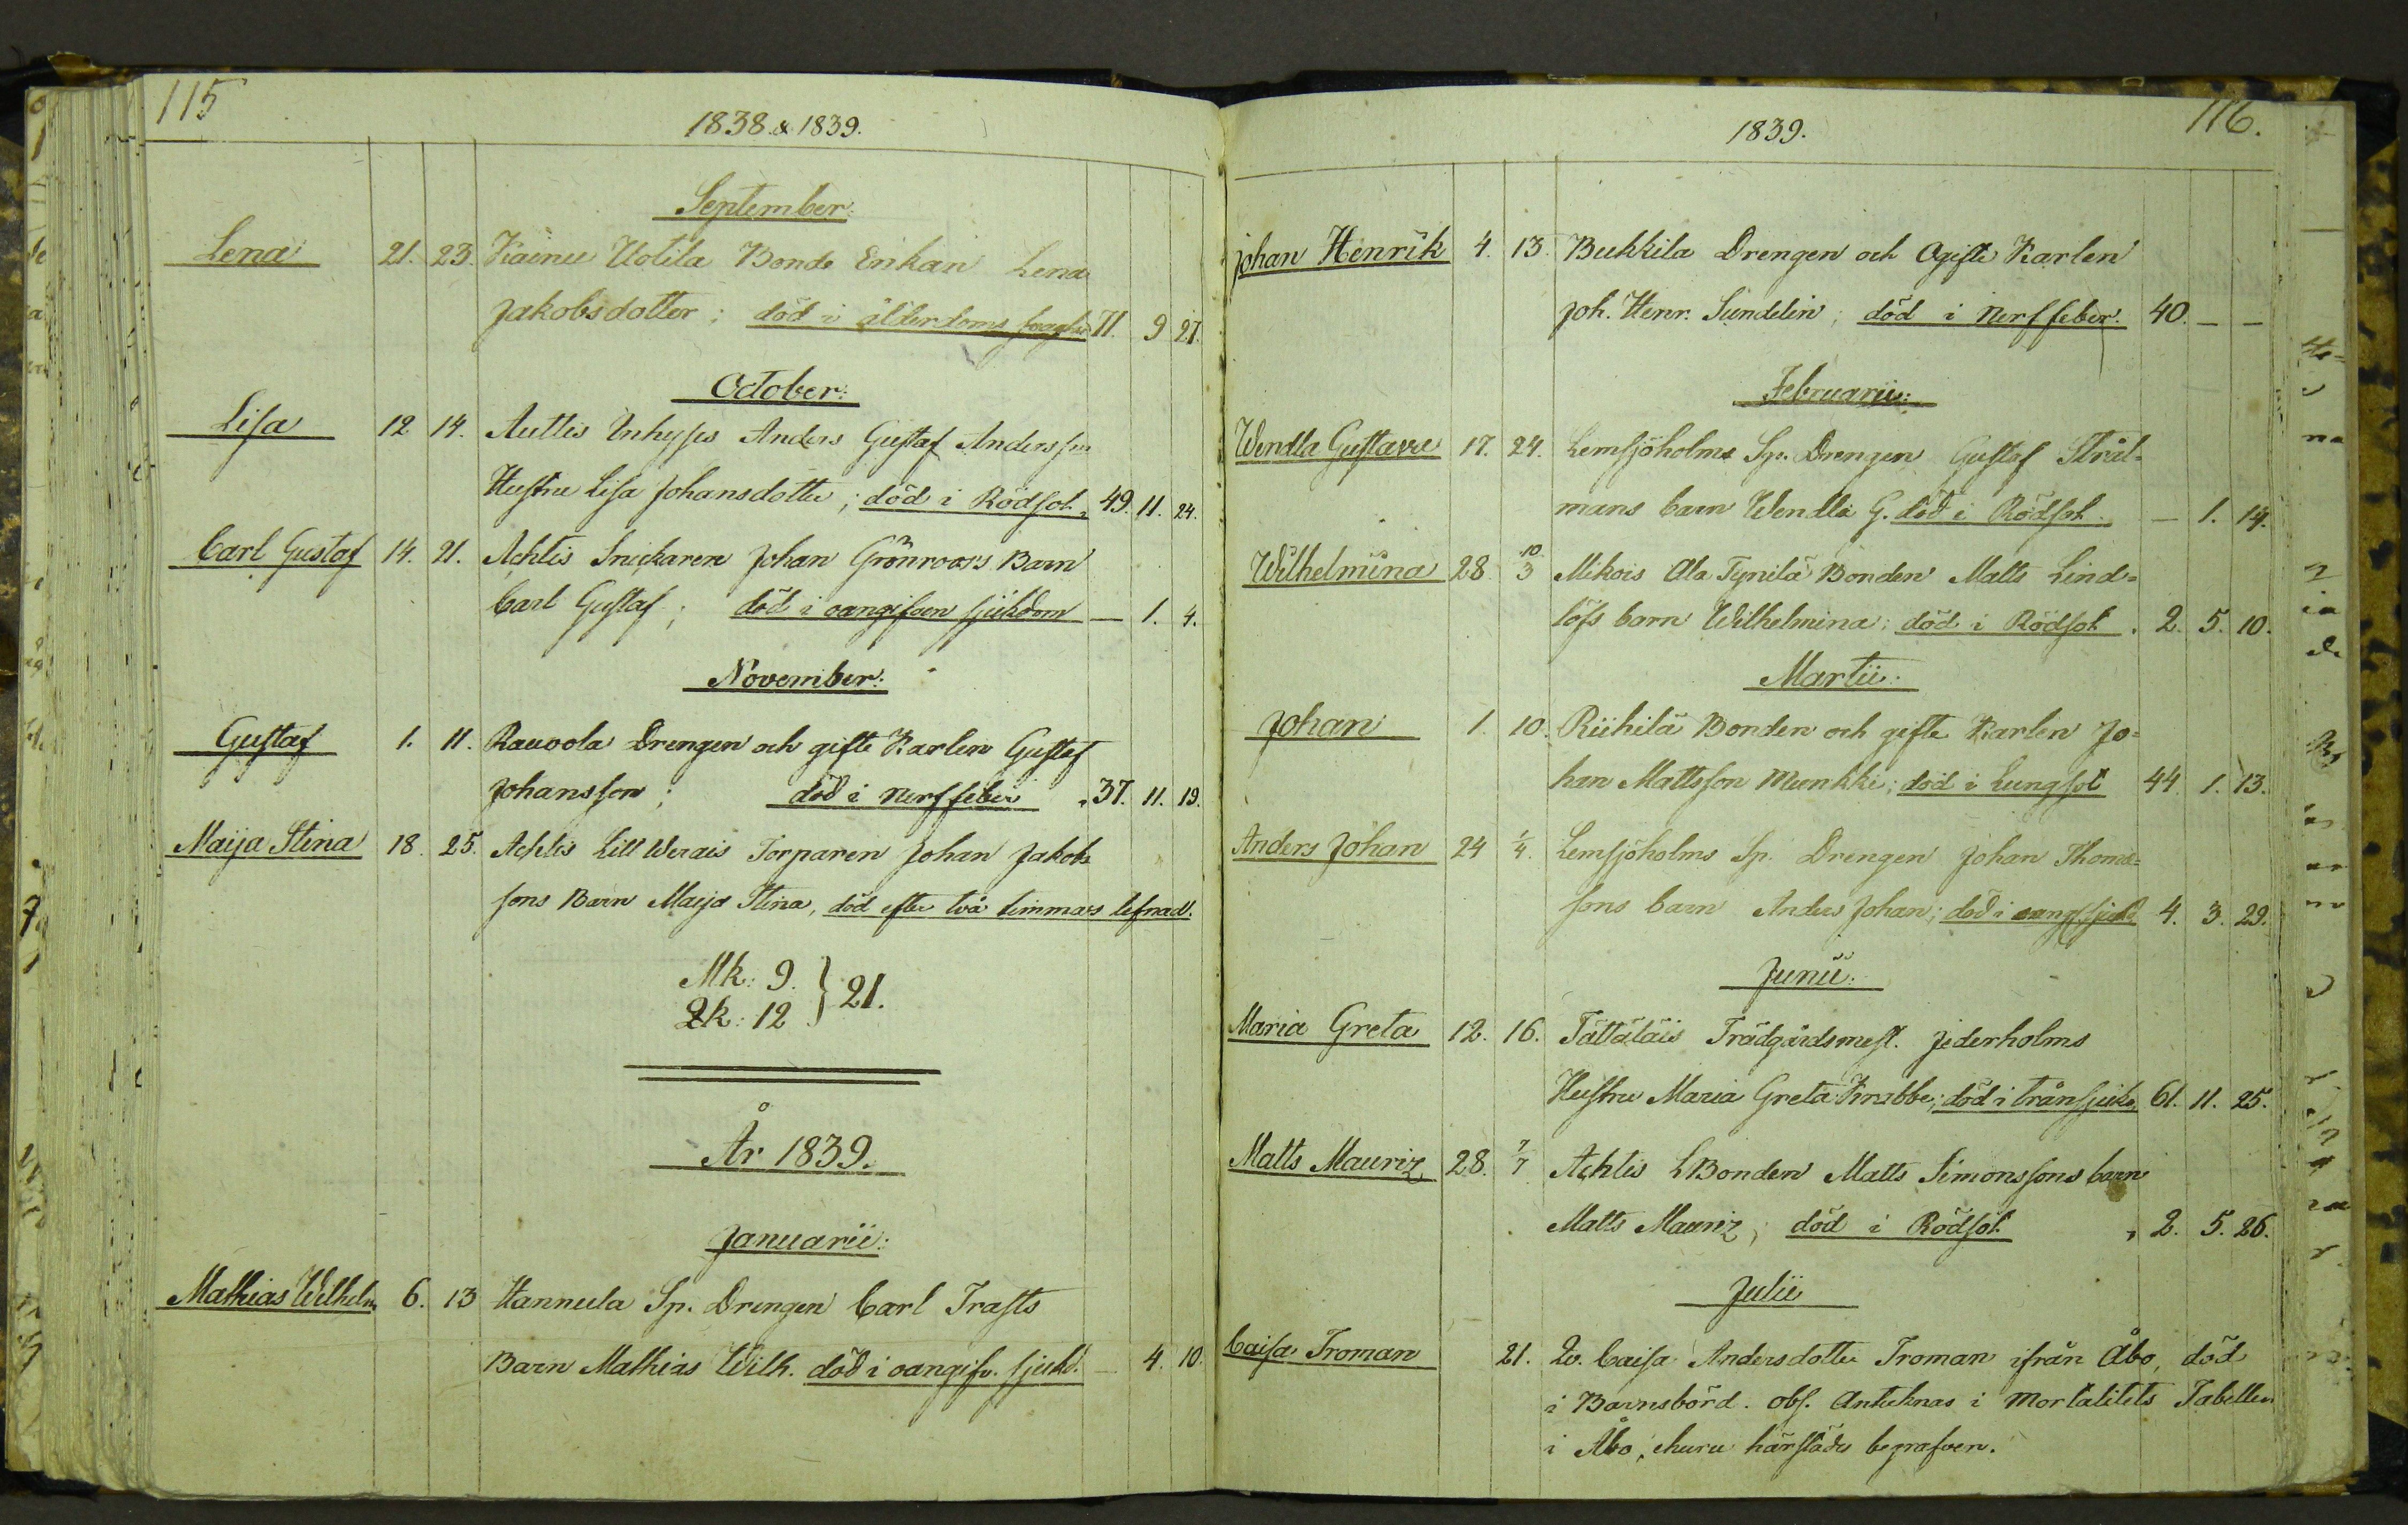 115
1838. & 1839.
September:
Lena 21. 23. Kainu Uotila Bonde Enkan Lena
Jakobsdotter; död i ålderdoms 71. 9 27.
October:
Lisa 12 14. Auttis Inhyses Anders Gustaf Andersson
Hustru Lisa Johansdotter; död i Rödsot. 49. 11. 24.
Carl Gustaf 14. 21. Achtis Snickaren Johan Grönroos's Barn
Carl Gustaf; död i oangifven sjukdom — 1. 4.
November:
Gustaf 1. 11. Rauvola Drengen och gifte Karlen Gustaf
Johansson; död i Nerffeber 37. 11. 19.
Maija Stina 18. 25. Achtis Lill Werais Torparen Johan Jakobs
sons Barn Maija Stina, död efter två timmars lefnad.
Mk: 9. } 21.
Qk: 12
År 1839.
Januarii:
Mathias Wilhelm 6. 13 Hannula Sp. Drengen Carl Trasts
Barn Mathias Wilh. död i oangifv. sjukd. — 4. 10.
116.
1839.
Johan Henrik 4. 13. Bukkila Drengen och Ogifte Karlen
Joh. Henr. Sundelin; död i Nerffeber. 40. — —
Februarii:
Wendla Gustava 17. 24. Lemsjöholms Sp. Drengen Gustaf Strål-
mans barn Wendla G. död i Rödsot. — 1. 14.
Wilhelmina 28. 10/3 Mikois Ala Tynilä Bonden Matts Lind-
löfs barn Wilhelmina; död i Rödsot. 2. 5. 10.
Martii:
Johan 1. 10. Riihilä Bonden och gifte Karlen Jo-
han Mattsson Munkki; död i Lungsot 44. 1. 13.
Anders Johan 24 1/4. Lemsjöholms Sp. Drengen Johan Thomæ-
sons barn Anders Johan; död i oangf sjukd. 4. 3. 29.
Junii:
Maria Greta 12. 16. Tättäläis Trädgårdsmest. Jederholms
Hustru Maria Greta Krabbe; död i trånsjuka, 61. 11. 25.
Matts Mauriz 28. 7/7 Achtis LBonden Matts Simonssons barn
Matts Mauriz, död i Rödsot 2. 5. 26.
Julii
Caisa Troman 21. Qv. Caisa Andersdotter Troman ifrån Åbo, död
i Barnsbörd. obs. Antecknas i Mortalitets Tabellen
i Åbo, ehuru härstädes begrafven.